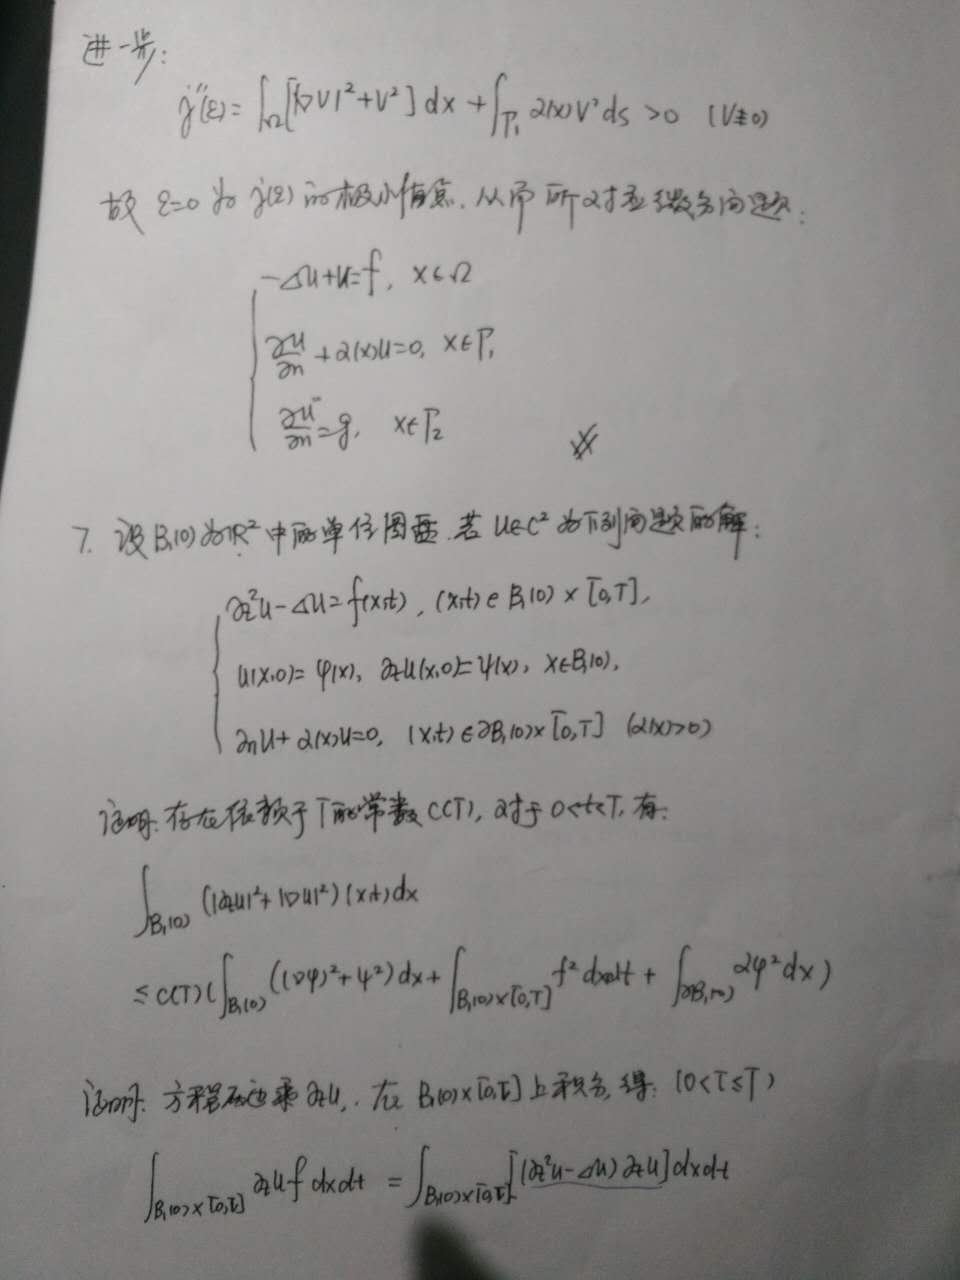 进一步:
j''(ε)=∫_Ω[|∇V|²+V²]dx+∫_{Γ₁}α(x)V²ds>0 (V≢0)
故 ε=0 为 j(ε) 的极小值点,从而所对应微分问题:
-Δu+u=f, x∈Ω
∂u/∂n+α(x)u=0, x∈Γ₁
∂u/∂n=g, x∈Γ₂
7. 设B₁(0)为ℝ²中的单位圆盘,若u∈C²为下列问题的解:
∂ₜ²u-Δu=f(x,t), (x,t)∈B₁(0)×[0,T],
u(x,0)=φ(x), ∂ₜu(x,0)=ψ(x), x∈B₁(0),
∂ₙu+α(x)u=0, (x,t)∈∂B₁(0)×[0,T] (α(x)>0)
证明:存在依赖于T的常数C(T),对于0<t<T,有:
∫_{B₁(0)}(|∂ₜu|²+|∇u|²)(x,t)dx
≤C(T)(∫_{B₁(0)}(|∇φ|²+ψ²)dx+∫_{B₁(0)×[0,T]}f²dxdt+∫_{∂B₁(0)}αφ²dx)
证明:方程两边乘∂ₜu,在B₁(0)×[0,τ]上积分,得:(0<τ≤T)
∫_{B₁(0)×[0,τ]}∂ₜu f dxdt=∫_{B₁(0)×[0,τ]}[(∂ₜ²u-Δu)∂ₜu]dxdt